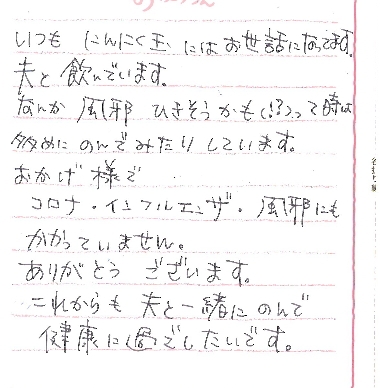 いつも にんにく玉 にはお世話になってます。
夫と飲んでいます。
なんか 風邪 ひきそうかも(!?)って時は
多めに のんでみたりしています。
おかげ様で
コロナ・インフルエンザ・風邪にも
かかっていません。
ありがとう ございます。
これからも 夫と一緒に のんで
健康に過ごしたいです。